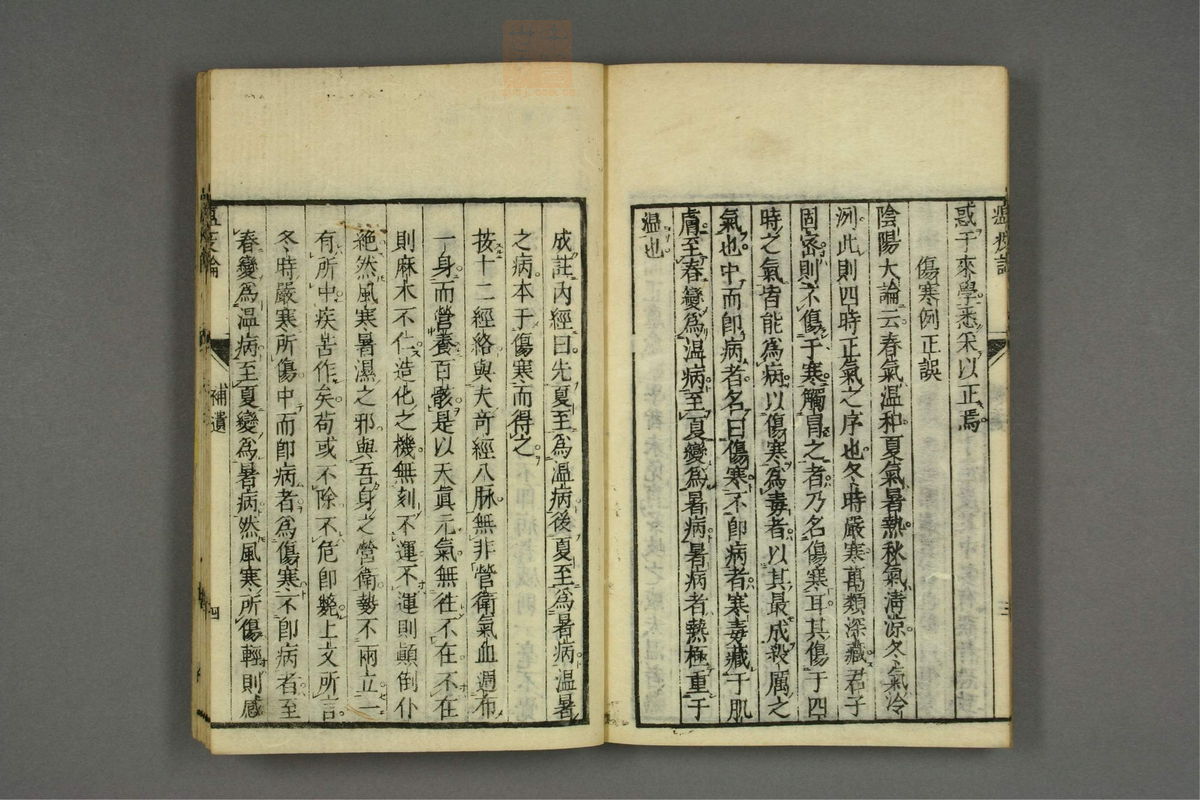 惑于來學悉采以正焉
傷寒例正誤
陰陽大論云春氣温和夏氣暑熱秋氣淸凉冬氣冷
冽此則四時正氣之序也冬時嚴寒萬類深藏君子
固密則不傷于寒觸冒之者乃名傷寒耳其傷于四
時之氣皆能為病以傷寒為毒者以其最成殺厲之
氣也中而即病者名曰傷寒不即病者寒毒藏于肌
膚至春變為温病至夏變為暑病暑病者熱極重于
温也
三
成註内經曰先夏至為温病後夏至為暑病温暑
之病本于傷寒而得之
按十二經絡與夫奇經八脉無非營衛氣血週布
一身而營養百骸是以天眞元氣無徃不在不在
則麻木不仁造化之機無刻不運不運則顚倒仆
絶然風寒暑濕之邪與吾身之營衛勢不兩立一
有所中疾苦作矣苟或不除不危即斃上文所言
冬時嚴寒所傷中而即病者為傷寒不即病者至
春變為温病至夏變為暑病然風寒所傷輕則感
温疫論
補遺
四